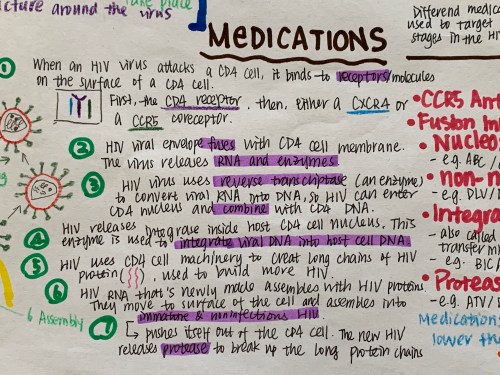 take place
cture around the virus
MEDICATIONS
Differend medica
used to target
stages in the HI
1 When an HIV virus attacks a CD4 cell, it binds to receptors/molecules
on the surface of a CD4 cell.
First, the CD4 receptor, then, either a CXCR4 or
a CCR5 coreceptor.
2 HIV viral envelope fuses with CD4 cell membrane.
The virus releases RNA and enzymes
3 HIV virus uses reverse transcriptase (an enzyme)
to convert viral RNA into DNA, so HIV can enter
CD4 nucleus and combine with CD4 DNA.
4 HIV releases integrase inside host CD4 cell nucleus. This
enzyme is used to integrate viral DNA into host cell DNA.
5 HIV uses CD4 cell machinery to creat long chains of HIV
protein ( ), used to build more HIV.
6 HIV RNA that's newly made assembles with HIV proteins.
They move to surface of the cell and assembles into
immature & noninfectious HIV
6 Assembly
7 pushes itself out of the CD4 cell. The new HIV
releases protease to break up the long protein chains
• CCR5 Ant
• Fusion In
• Nucleo
- e.g. ABC /
• non-n
- e.g. DLV/D
• Integra
- also called
transfer in
- e.g. BIC
• Proteas
- e.g. ATV /
Medication
lower th